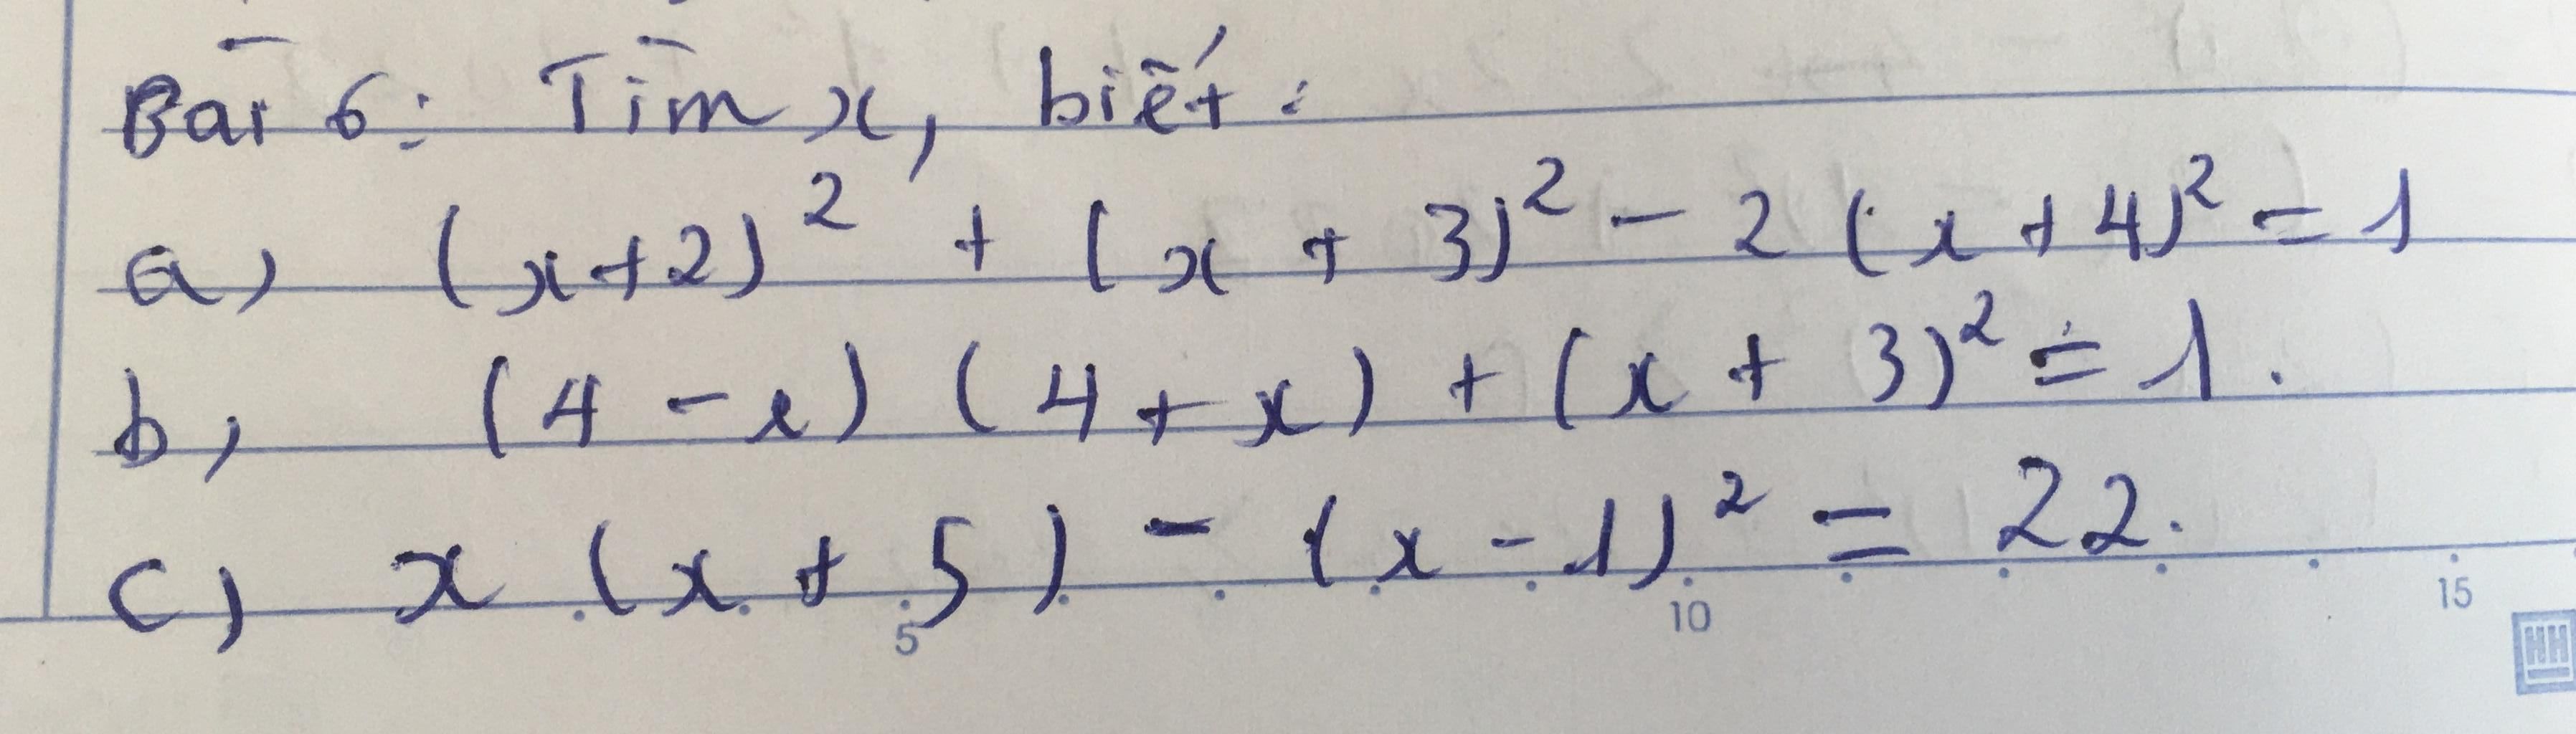 Bài 6: Tìm x, biết:
a) (x+2)² + (x + 3)² - 2 (x + 4)² = 1
b) (4 - x) (4 + x) + (x + 3)² = 1.
c) x (x + 5) - (x - 1)² = 22.
5 10 15
HH